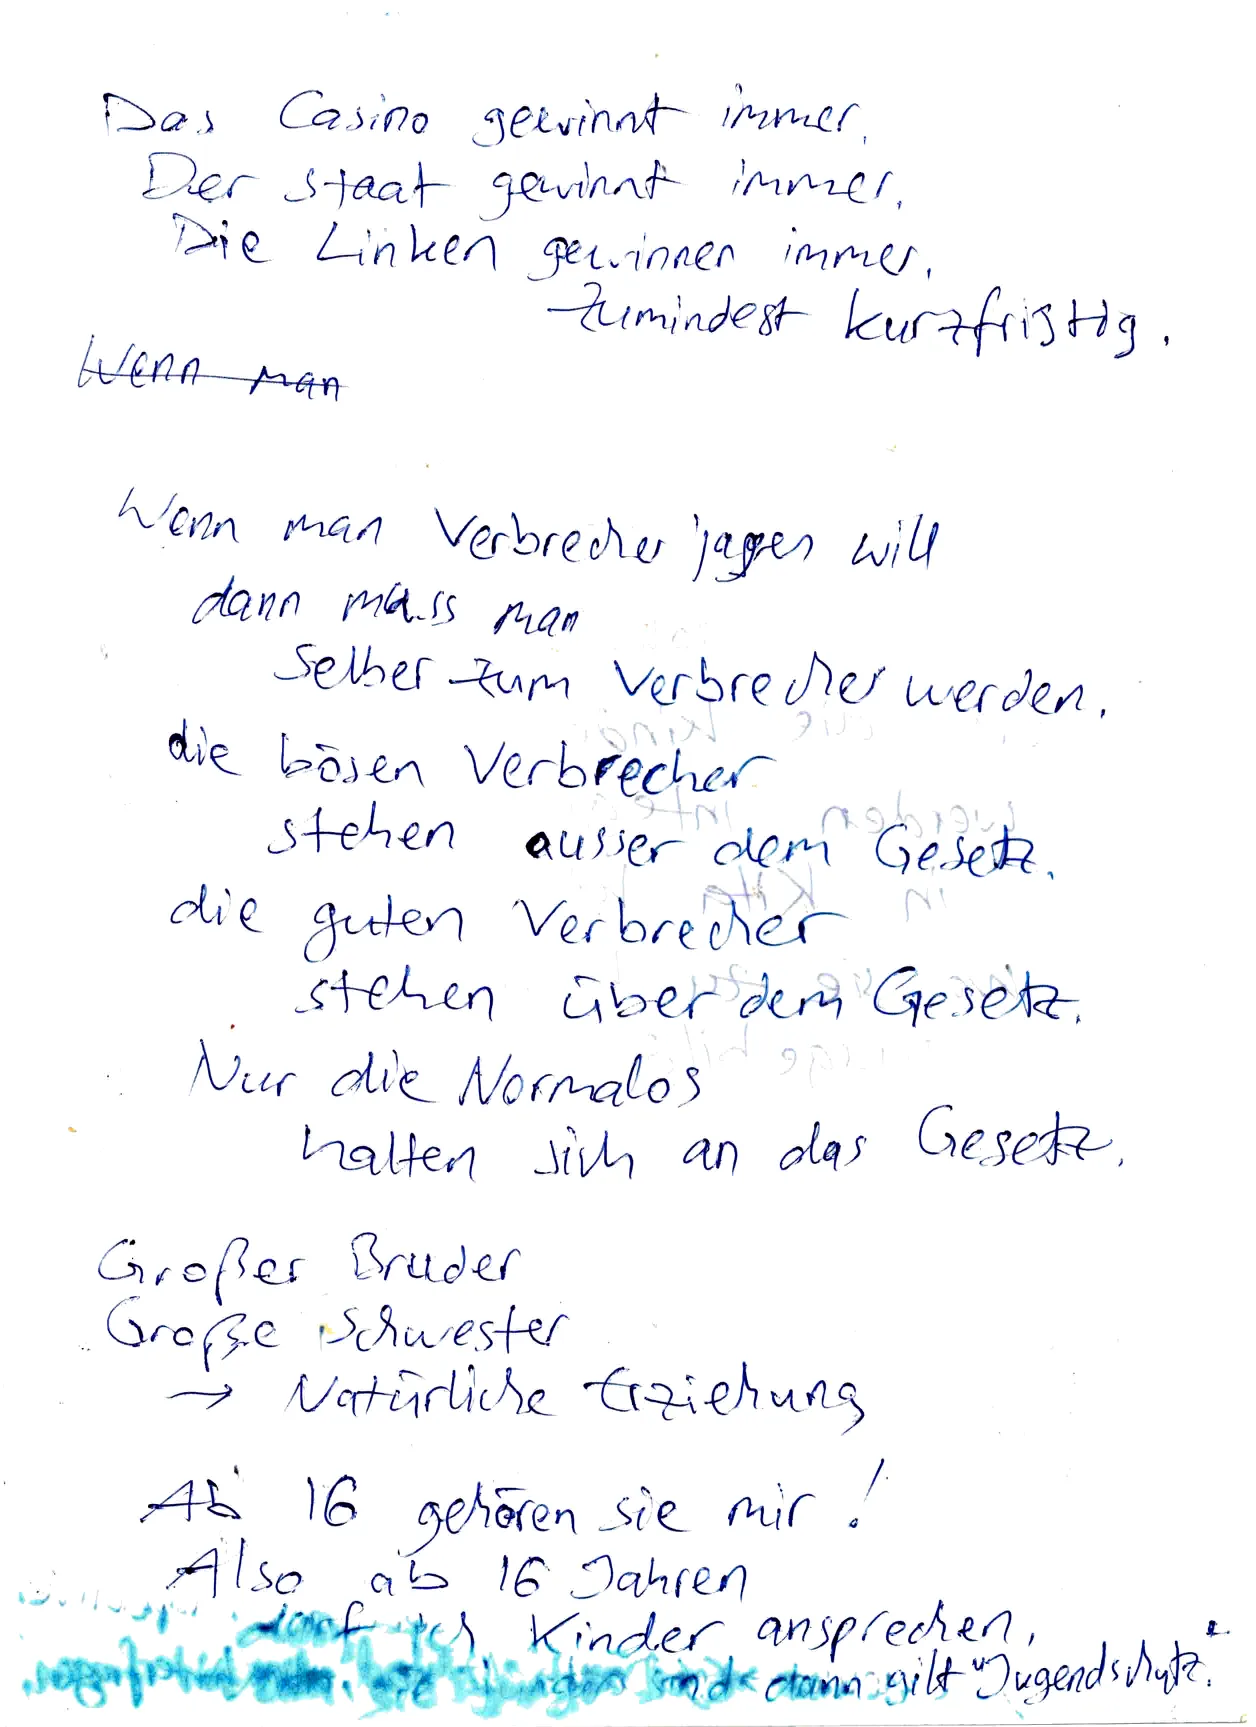 Das Casino gewinnt immer.
Der Staat gewinnt immer.
Die Linken gewinnen immer.
Zumindest kurzfristig.
Wenn man
Wenn man Verbrecher jagen will
dann muss man
Selber zum Verbrecher werden.
die bösen Verbrecher
stehen ausser dem Gesetz.
die guten Verbrecher
stehen über dem Gesetz.
Nur die Normalos
halten sich an das Gesetz.
Großer Bruder
Große Schwester
→ Natürliche Erziehung
Ab 16 gehören sie mir!
Also ab 16 Jahren
darf ich Kinder ansprechen,
die jünger sind dann gilt "Jugendschutz."